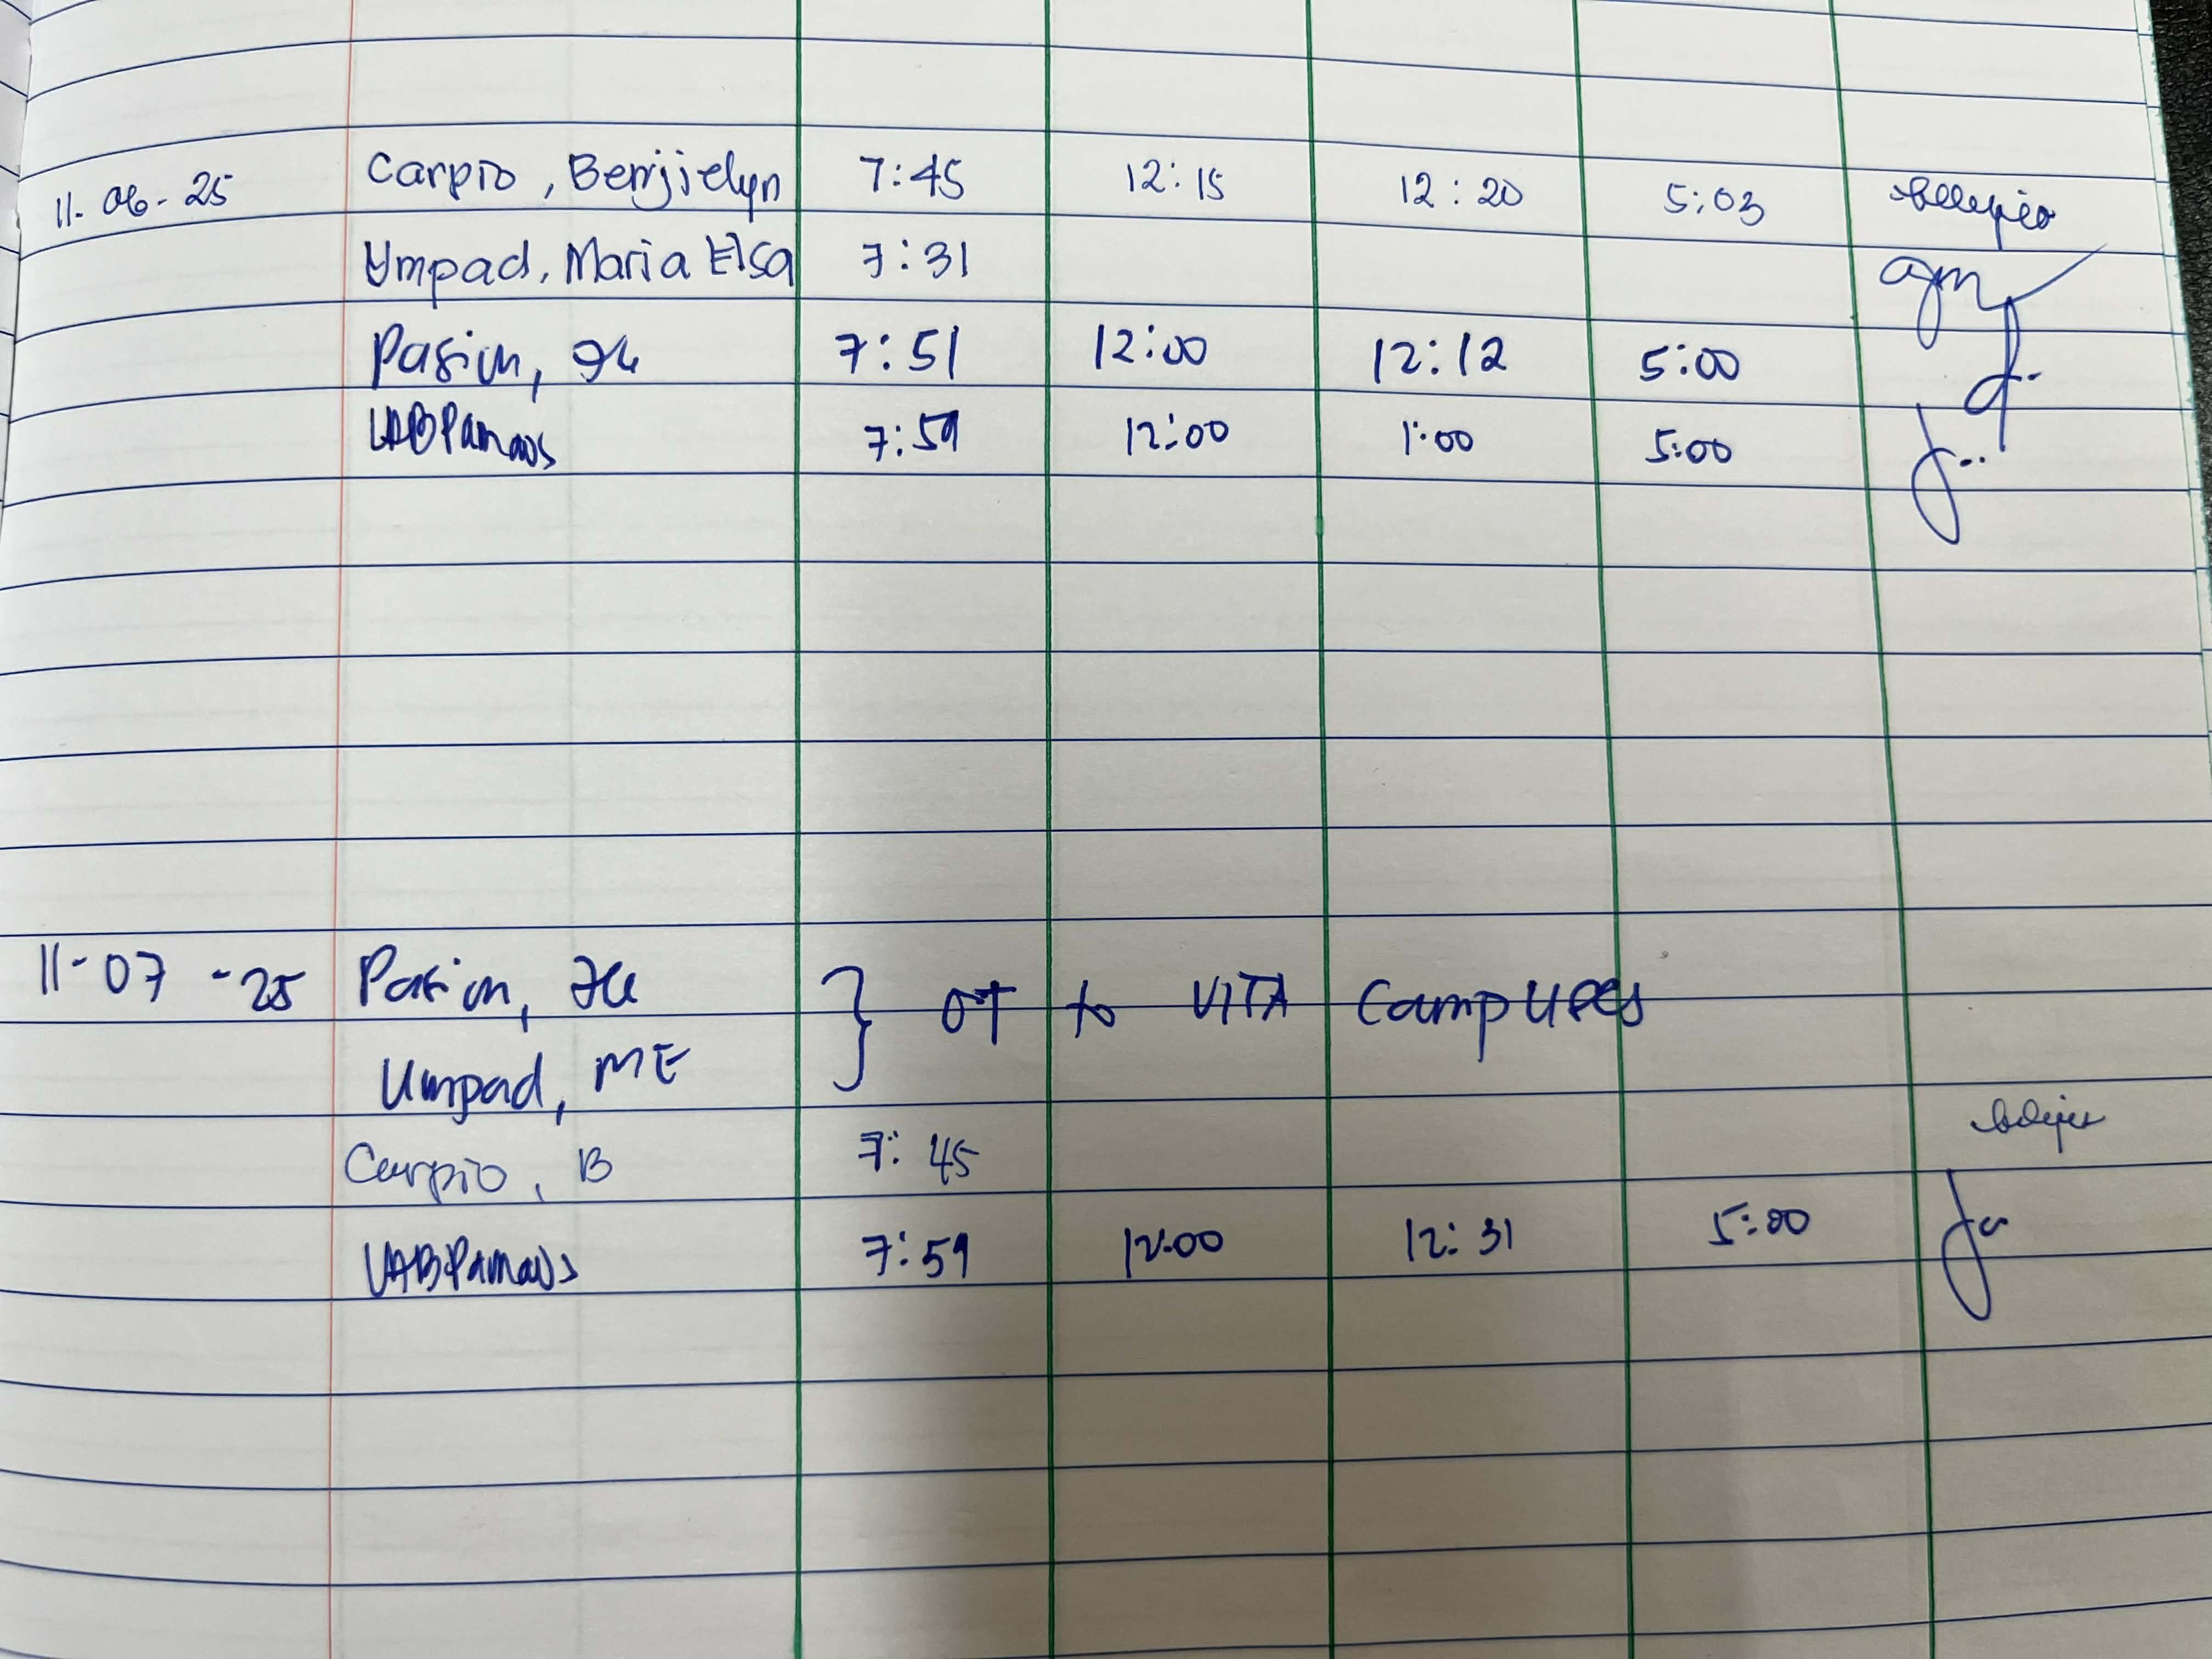 11-06-25 Carpio, Benjielyn 7:45 12:15 12:20 5:03
Umpad, Maria Elsa 7:31
Pasion, 7:51 12:00 12:12 5:00
7:59 12:00 1:00 5:00
11-07-25 Pasion, } OT to VITA Campuses
Umpad, ME
Carpio, B 7:45
7:59 12:00 12:31 5:00